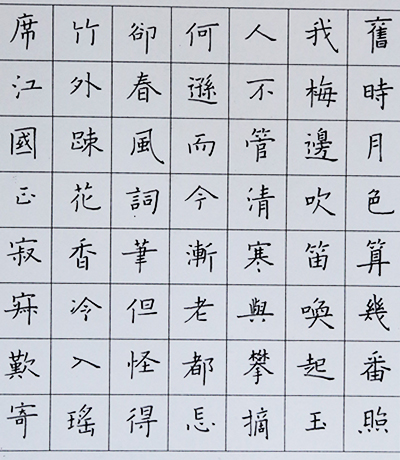 舊時月色算幾番照
我梅邊吹笛喚起玉
人不管清寒與攀摘
何遜而今漸老都忘
卻春風詞筆但怪得
竹外踈花香冷入瑤
席江國正寂寂歎寄